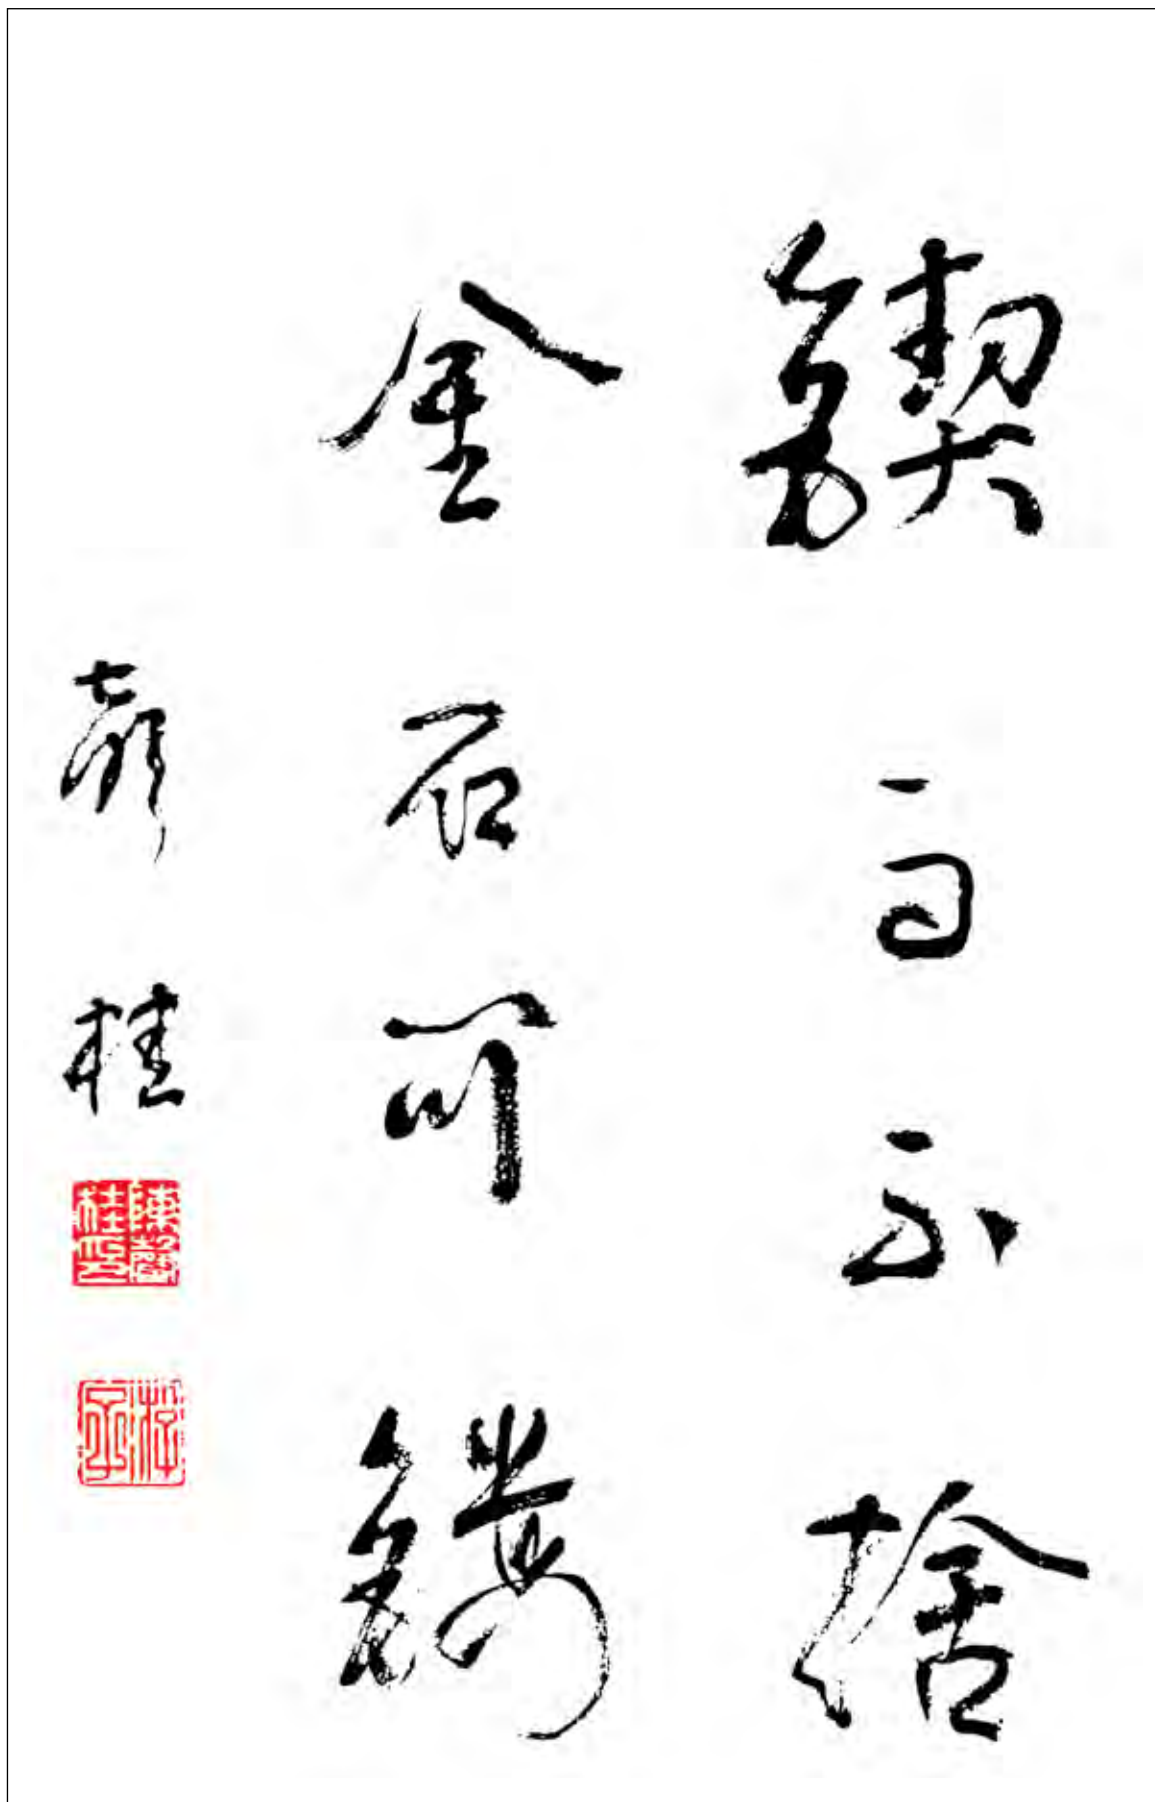 鍥而不捨
金石可鏤
桂
陳
桂印